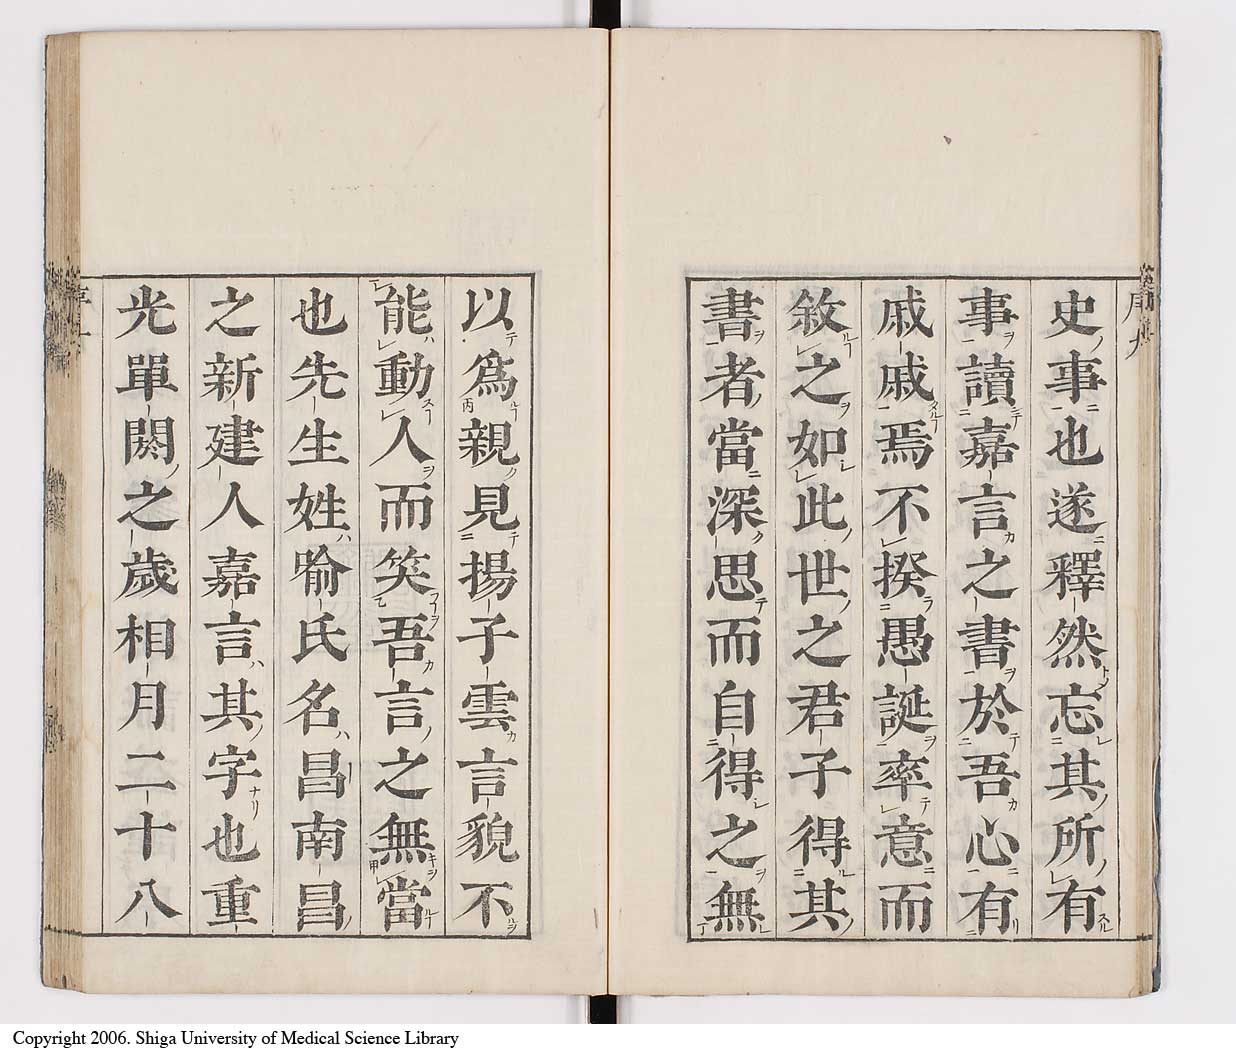 史事也遂釋然忘其所有
事讀嘉言之書於吾心有
戚戚焉不揆愚誕率意而
敘之如此世之君子得其
書者當深思而自得之無
以為親見揚子雲言貌不
能動人而笑吾言之無當
也先生姓喻氏名昌南昌
之新建人嘉言其字也重
光單閼之歲相月二十八
Copyright 2006. Shiga University of Medical Science Library